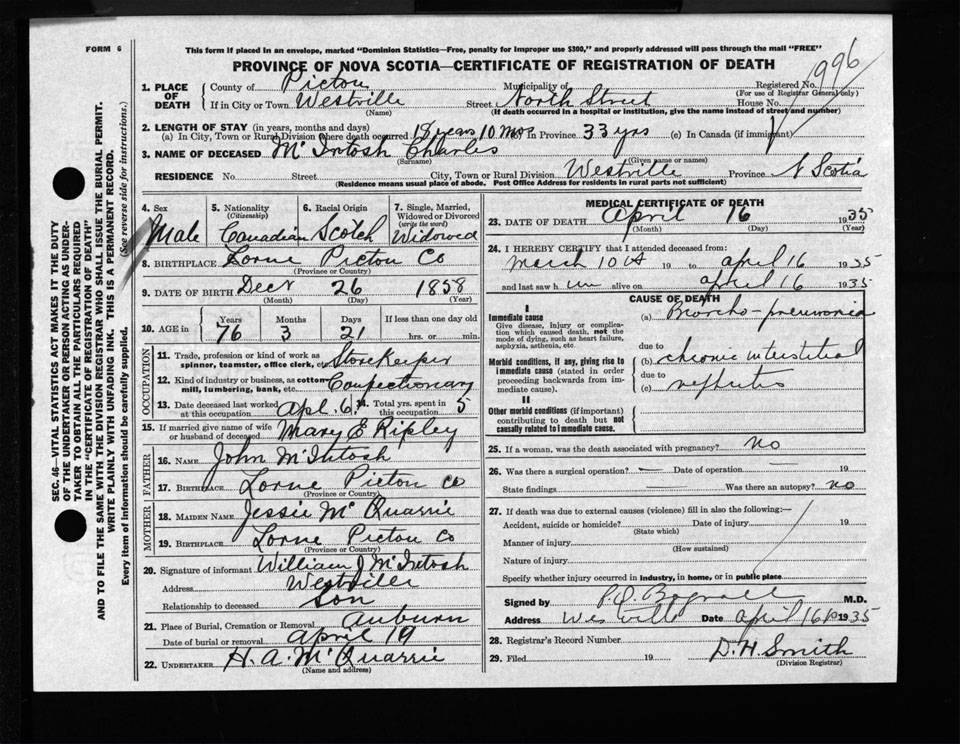 FORM 6
This form if placed in an envelope, marked "Dominion Statistics—Free, penalty for improper use $300," and properly addressed will pass through the mail "FREE"
PROVINCE OF NOVA SCOTIA—CERTIFICATE OF REGISTRATION OF DEATH
1996
1. PLACE OF DEATH
County of Pictou Municipality of Registered No.
(For use of Registrar General only)
If in City or Town Westville Street North Street House No.
(Name) (If death occurred in a hospital or institution, give the name instead of street and number)
2. LENGTH OF STAY (in years, months and days)
(a) In City, Town or Rural Division where death occurred 18 years 10 mos In Province 33 yrs (c) In Canada (if immigrant)
3. NAME OF DECEASED McIntosh Charles
(Surname) (Given name or names)
RESIDENCE No. Street City, Town or Rural Division Westville Province N Scotia
(Residence means usual place of abode. Post Office Address for residents in rural parts not sufficient)
4. Sex Male
5. Nationality (Citizenship) Canadian
6. Racial Origin Scotch
7. Single, Married, Widowed or Divorced (write the word) Widowed
8. BIRTHPLACE Lorne Pictou Co
(Province or Country)
9. DATE OF BIRTH Decr 26 1858
(Month) (Day) (Year)
10. AGE in Years Months Days If less than one day old
76 3 21 hrs. or min.
OCCUPATION
11. Trade, profession or kind of work as spinner, teamster, office clerk, etc. Storekeeper
12. Kind of industry or business, as cotton mill, lumbering, bank, etc. Confectionary
13. Date deceased last worked at this occupation Apl. 6. 34 Total yrs. spent in this occupation 5
15. If married give name of wife or husband of deceased Mary E Ripley
FATHER
16. NAME John McIntosh
17. BIRTHPLACE Lorne Pictou Co
(Province or Country)
MOTHER
18. MAIDEN NAME Jessie McQuarrie
19. BIRTHPLACE Lorne Pictou Co
(Province or Country)
20. Signature of informant William J McIntosh
Address Westville
Relationship to deceased Son
21. Place of Burial, Cremation or Removal Auburn
Date of burial or removal April 19
22. UNDERTAKER H. A. McQuarrie
(Name and address)
MEDICAL CERTIFICATE OF DEATH
23. DATE OF DEATH April 16 1935
(Month) (Day) (Year)
24. I HEREBY CERTIFY that I attended deceased from:
March 10th 19 to april 16 1935
and last saw h im alive on april 16 1935
CAUSE OF DEATH
I
Immediate cause
Give disease, injury or complication which caused death, not the mode of dying, such as heart failure, asphyxia, asthenia, etc.
(a) Broncho-pneumonia
due to
Morbid conditions, if any, giving rise to immediate cause (stated in order proceeding backwards from immediate cause).
(b) chronic interstitial
due to
(c) nephritis
II
Other morbid conditions (if important) contributing to death but not causally related to immediate cause.
25. If a woman, was the death associated with pregnancy? no
26. Was there a surgical operation? — Date of operation — 19
State findings Was there an autopsy? no
27. If death was due to external causes (violence) fill in also the following:—
Accident, suicide or homicide? Date of injury 19
(State which)
Manner of injury
(How sustained)
Nature of injury
Specify whether injury occurred in industry, in home, or in public place
Signed by M.D.
Address Westville Date april 16th 1935
28. Registrar's Record Number
29. Filed 19 D. H. Smith
(Division Registrar)
SEC. 46—VITAL STATISTICS ACT MAKES IT THE DUTY
OF THE UNDERTAKER OR PERSON ACTING AS UNDER-
TAKER TO OBTAIN ALL THE PARTICULARS REQUIRED
IN THE "CERTIFICATE OF REGISTRATION OF DEATH"
AND TO FILE THE SAME WITH THE DIVISION REGISTRAR WHO SHALL ISSUE THE BURIAL PERMIT.
WRITE PLAINLY WITH UNFADING INK. THIS IS A PERMANENT RECORD.
Every item of information should be carefully supplied. (See reverse side for instructions.)